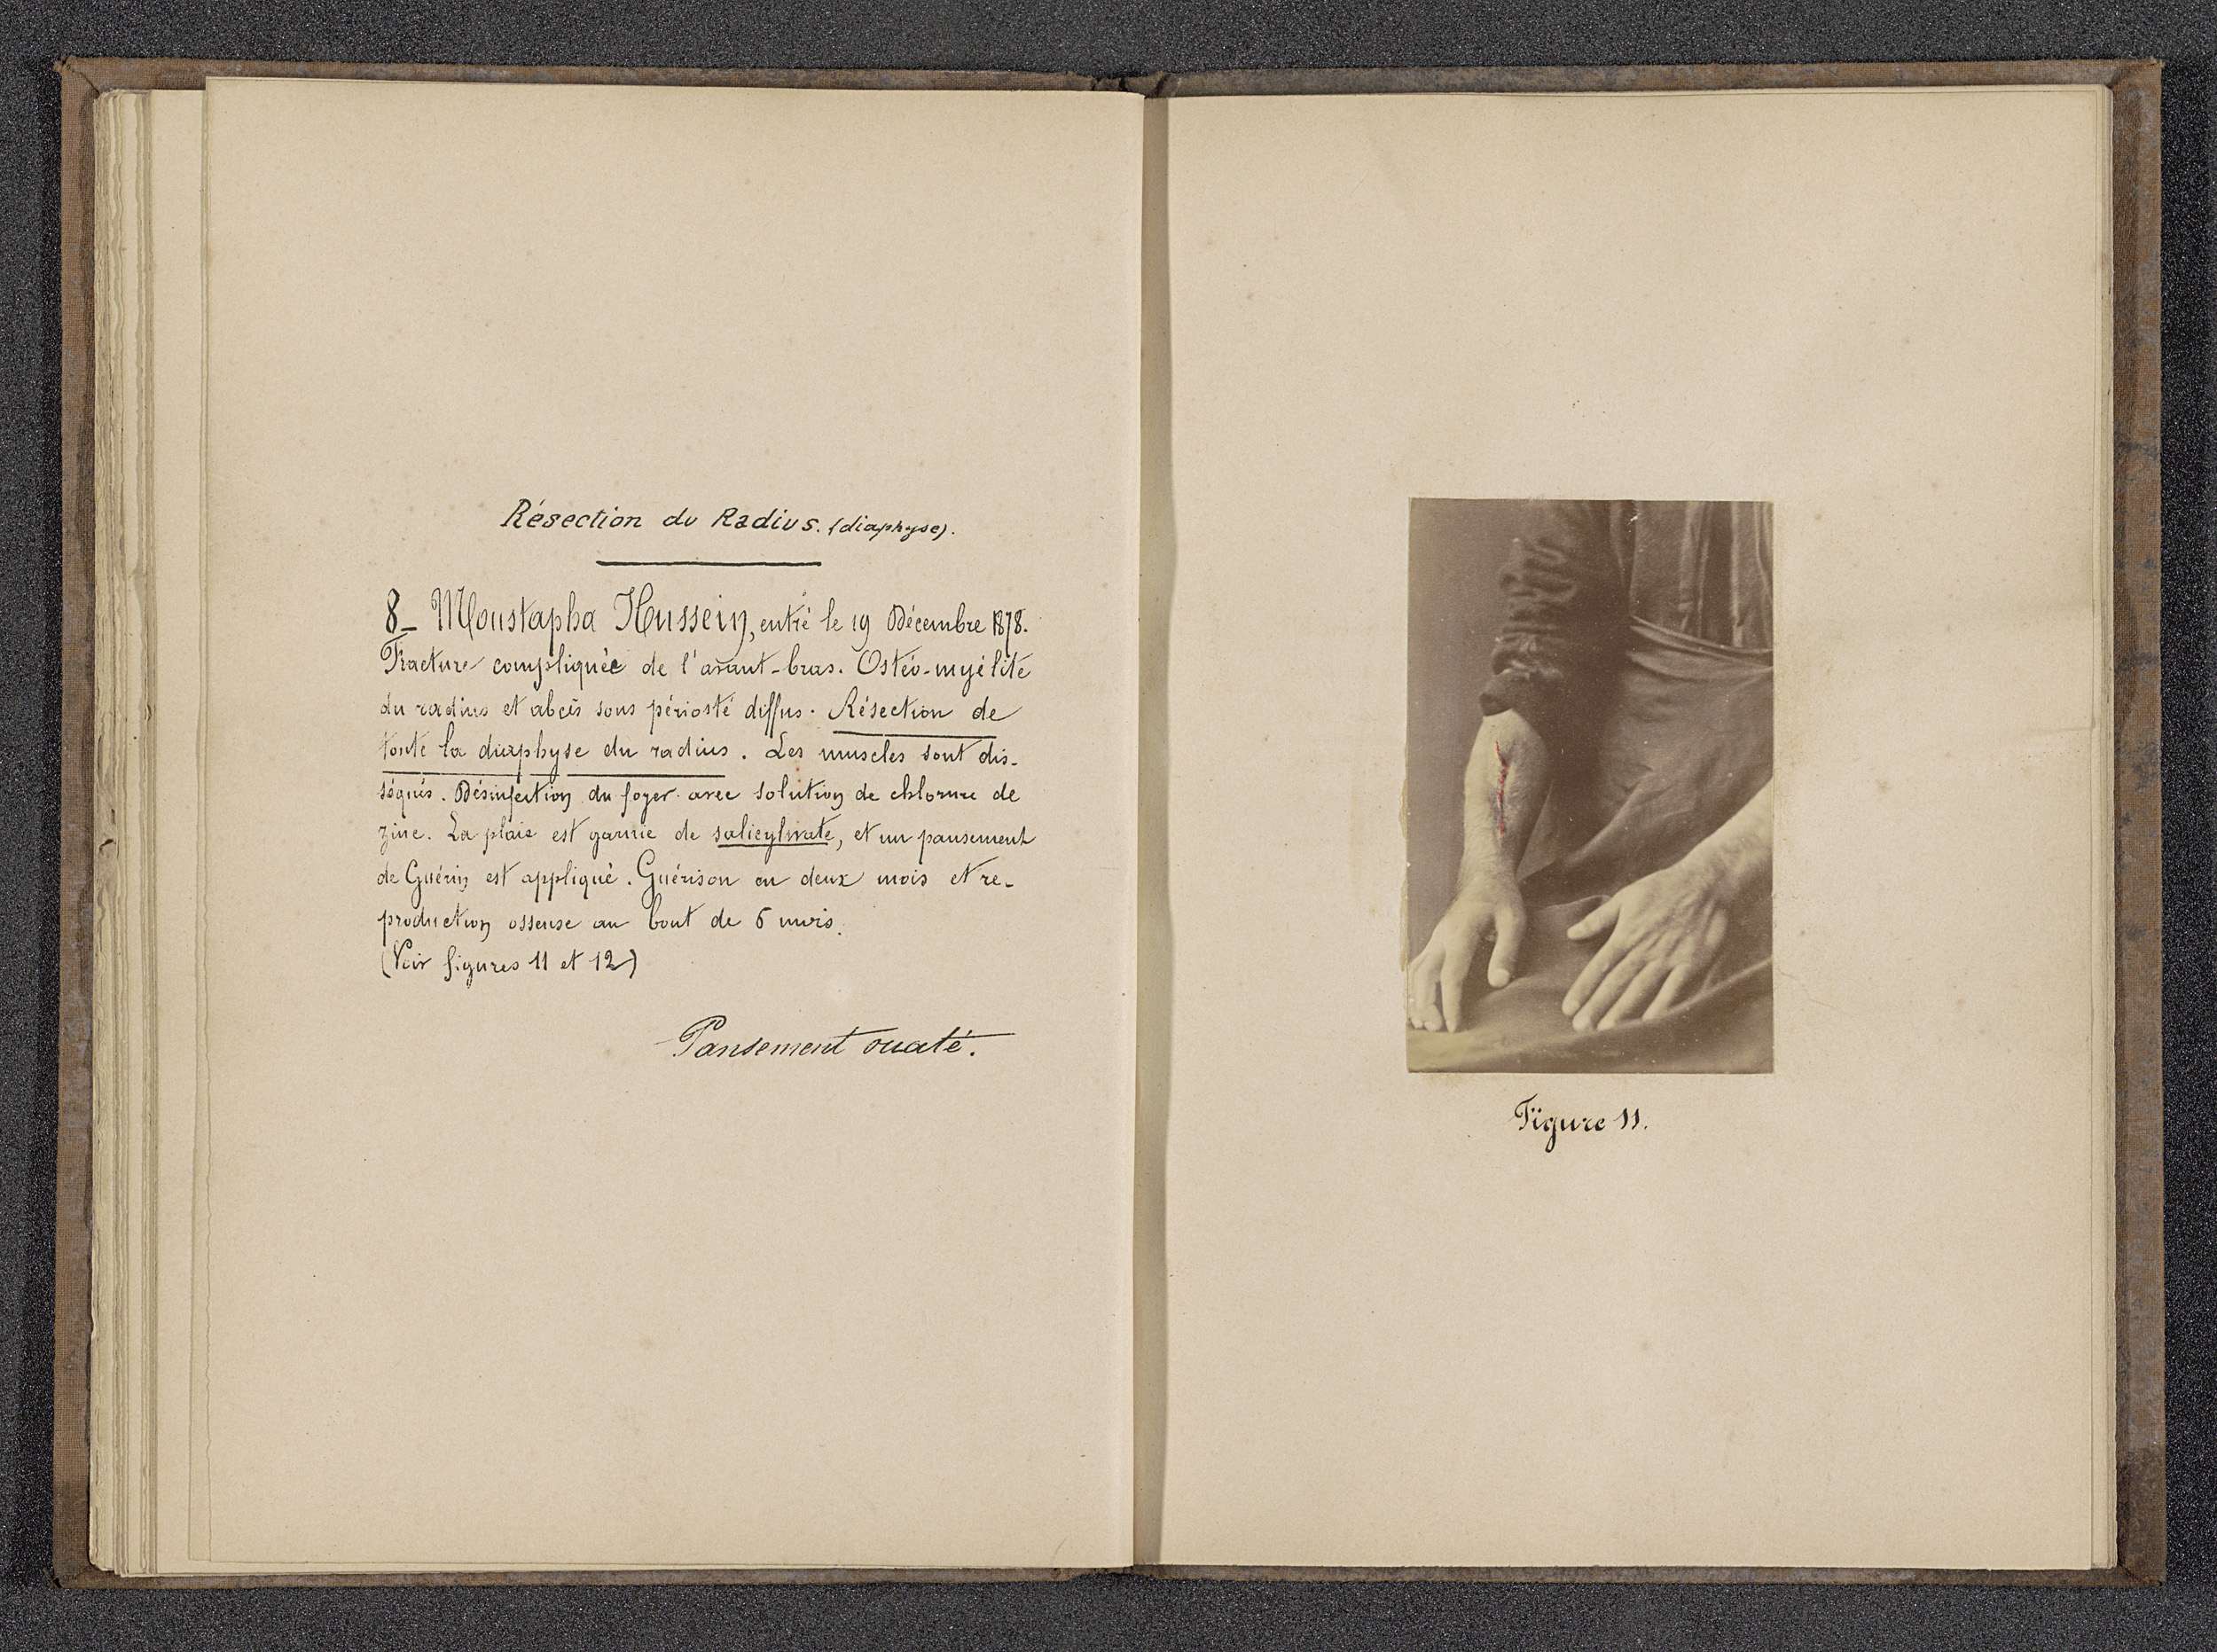 Résection du Radius. (diaphyse).
8_ Moustapha Hussein, entré le 19 Décembre 1878.
Fracture compliquée de l'avant-bras. Ostéo-myélite
du radius et abcès sous périosté diffus. Résection de
toute la diaphyse du radius. Les muscles sont dis-
séqués. Désinfection du foyer avec solution de chlorure de
zinc. La plaie est garnie de salicylwate, et un pansement
de Guérin est appliqué. Guérison en deux mois et re-
production osseuse au bout de 6 mois.
(Voir figures 11 et 12)
Pansement ouaté.
Figure 11.